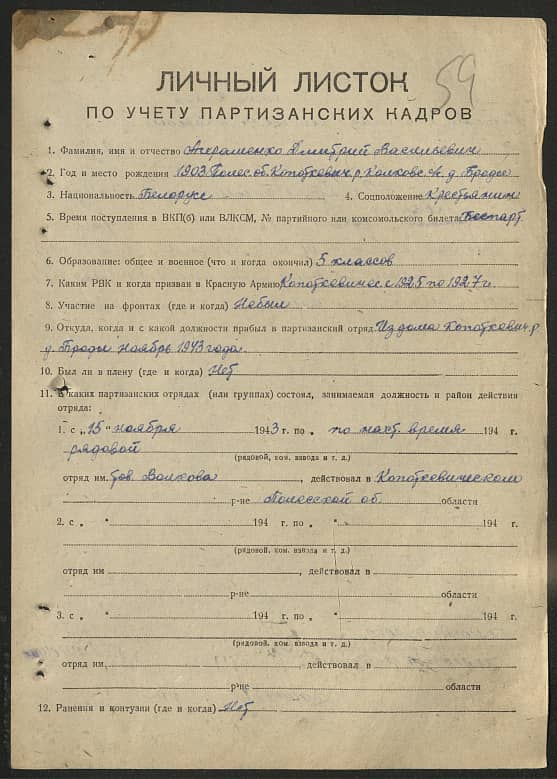 59
ЛИЧНЫЙ ЛИСТОК
ПО УЧЕТУ ПАРТИЗАНСКИХ КАДРОВ
1. Фамилия, имя и отчество Дмитрий Васильевич
2. Год и место рождения 1903 Полес. об. Копаткевич. р. д. Броды
3. Национальность Белорус 4. Соцположение Крестьянин
5. Время поступления в ВКП(б) или ВЛКСМ, № партийного или комсомольского билета Беспарт.
6. Образование: общее и военное (что и когда окончил) 5 классов
7. Каким РВК и когда призван в Красную Армию с 1925 по 1927 г.
8. Участие на фронтах (где и когда) Не был
9. Откуда, когда и с какой должности прибыл в партизанский отряд Из дома Копоткевич. р
д. Броды ноябрь 1943 года.
10. Был ли в плену (где и когда) Нет
11. В каких партизанских отрядах (или группах) состоял, занимаемая должность и район действия
отряда:
1. с „15" ноября 1943 г. по „ по наст. время 194 г.
рядовой
(рядовой, ком. взвода и т. д.)
отряд им. тов. Волкова, действовал в Копоткевическом
р-не Полесской об. области
2. с „ " 194 г. по „ " 194 г.
(рядовой, ком. взвода и т. д.)
отряд им , действовал в
р-не области
3. с „ " 194 г. по „ " 194 г.
(рядовой, ком. взвода и т. д.)
отряд им. , действовал в
р-не области
12. Ранения и контузии (где и когда) Нет